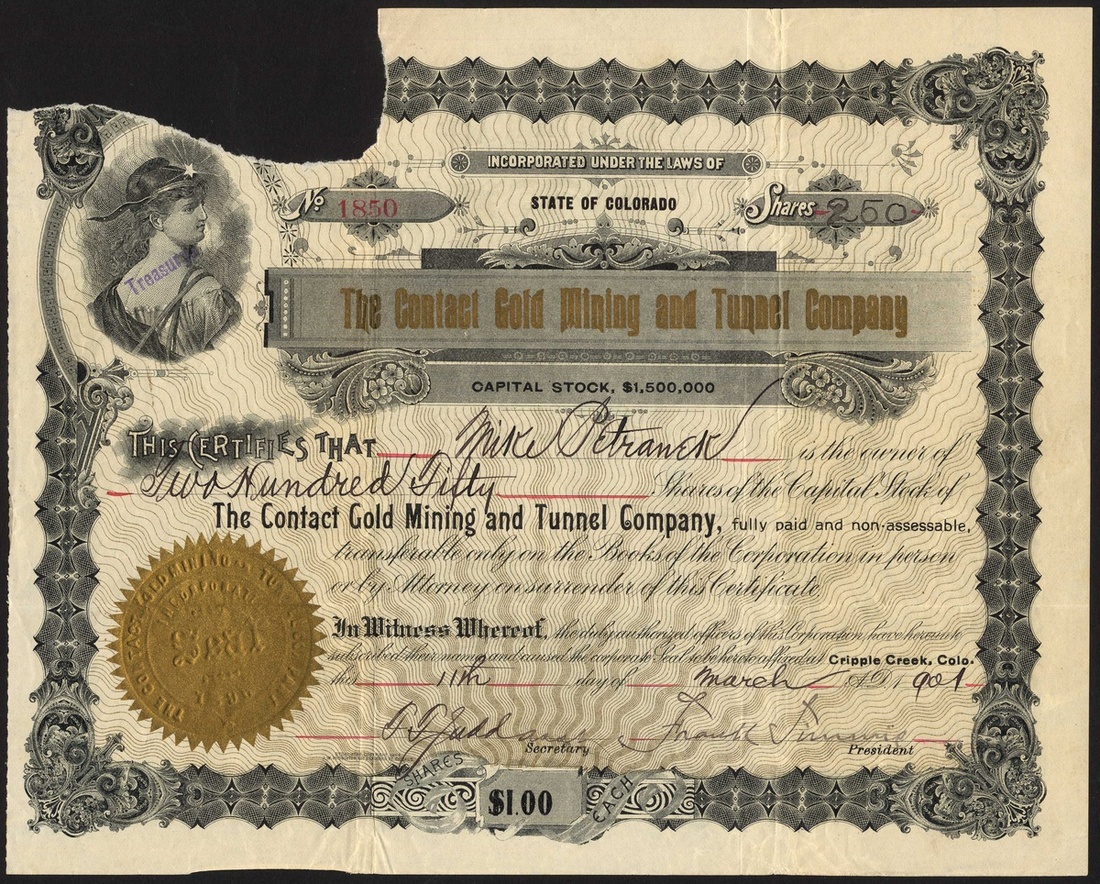 INCORPORATED UNDER THE LAWS OF
STATE OF COLORADO
No. 1850
Shares 250
Treasu
The Contact Gold Mining and Tunnel Company
CAPITAL STOCK, $1,500,000
THIS CERTIFIES THAT Mike Petranek is the owner of
Two Hundred Fifty Shares of the Capital Stock of
The Contact Gold Mining and Tunnel Company, fully paid and non-assessable,
transferable only on the Books of the Corporation in person
or by Attorney on surrender of this Certificate.
In Witness Whereof, the duly authorized officers of this Corporation have hereunto
subscribed their names and caused the corporate Seal to be hereto affixed at Cripple Creek, Colo.
this 11th day of March A.D. 1901
Judd
Secretary
Frank
President
THE CONTACT GOLD MINING & TUNNEL COMPANY
INCORPORATED
Seal
SHARES
$1.00
EACH